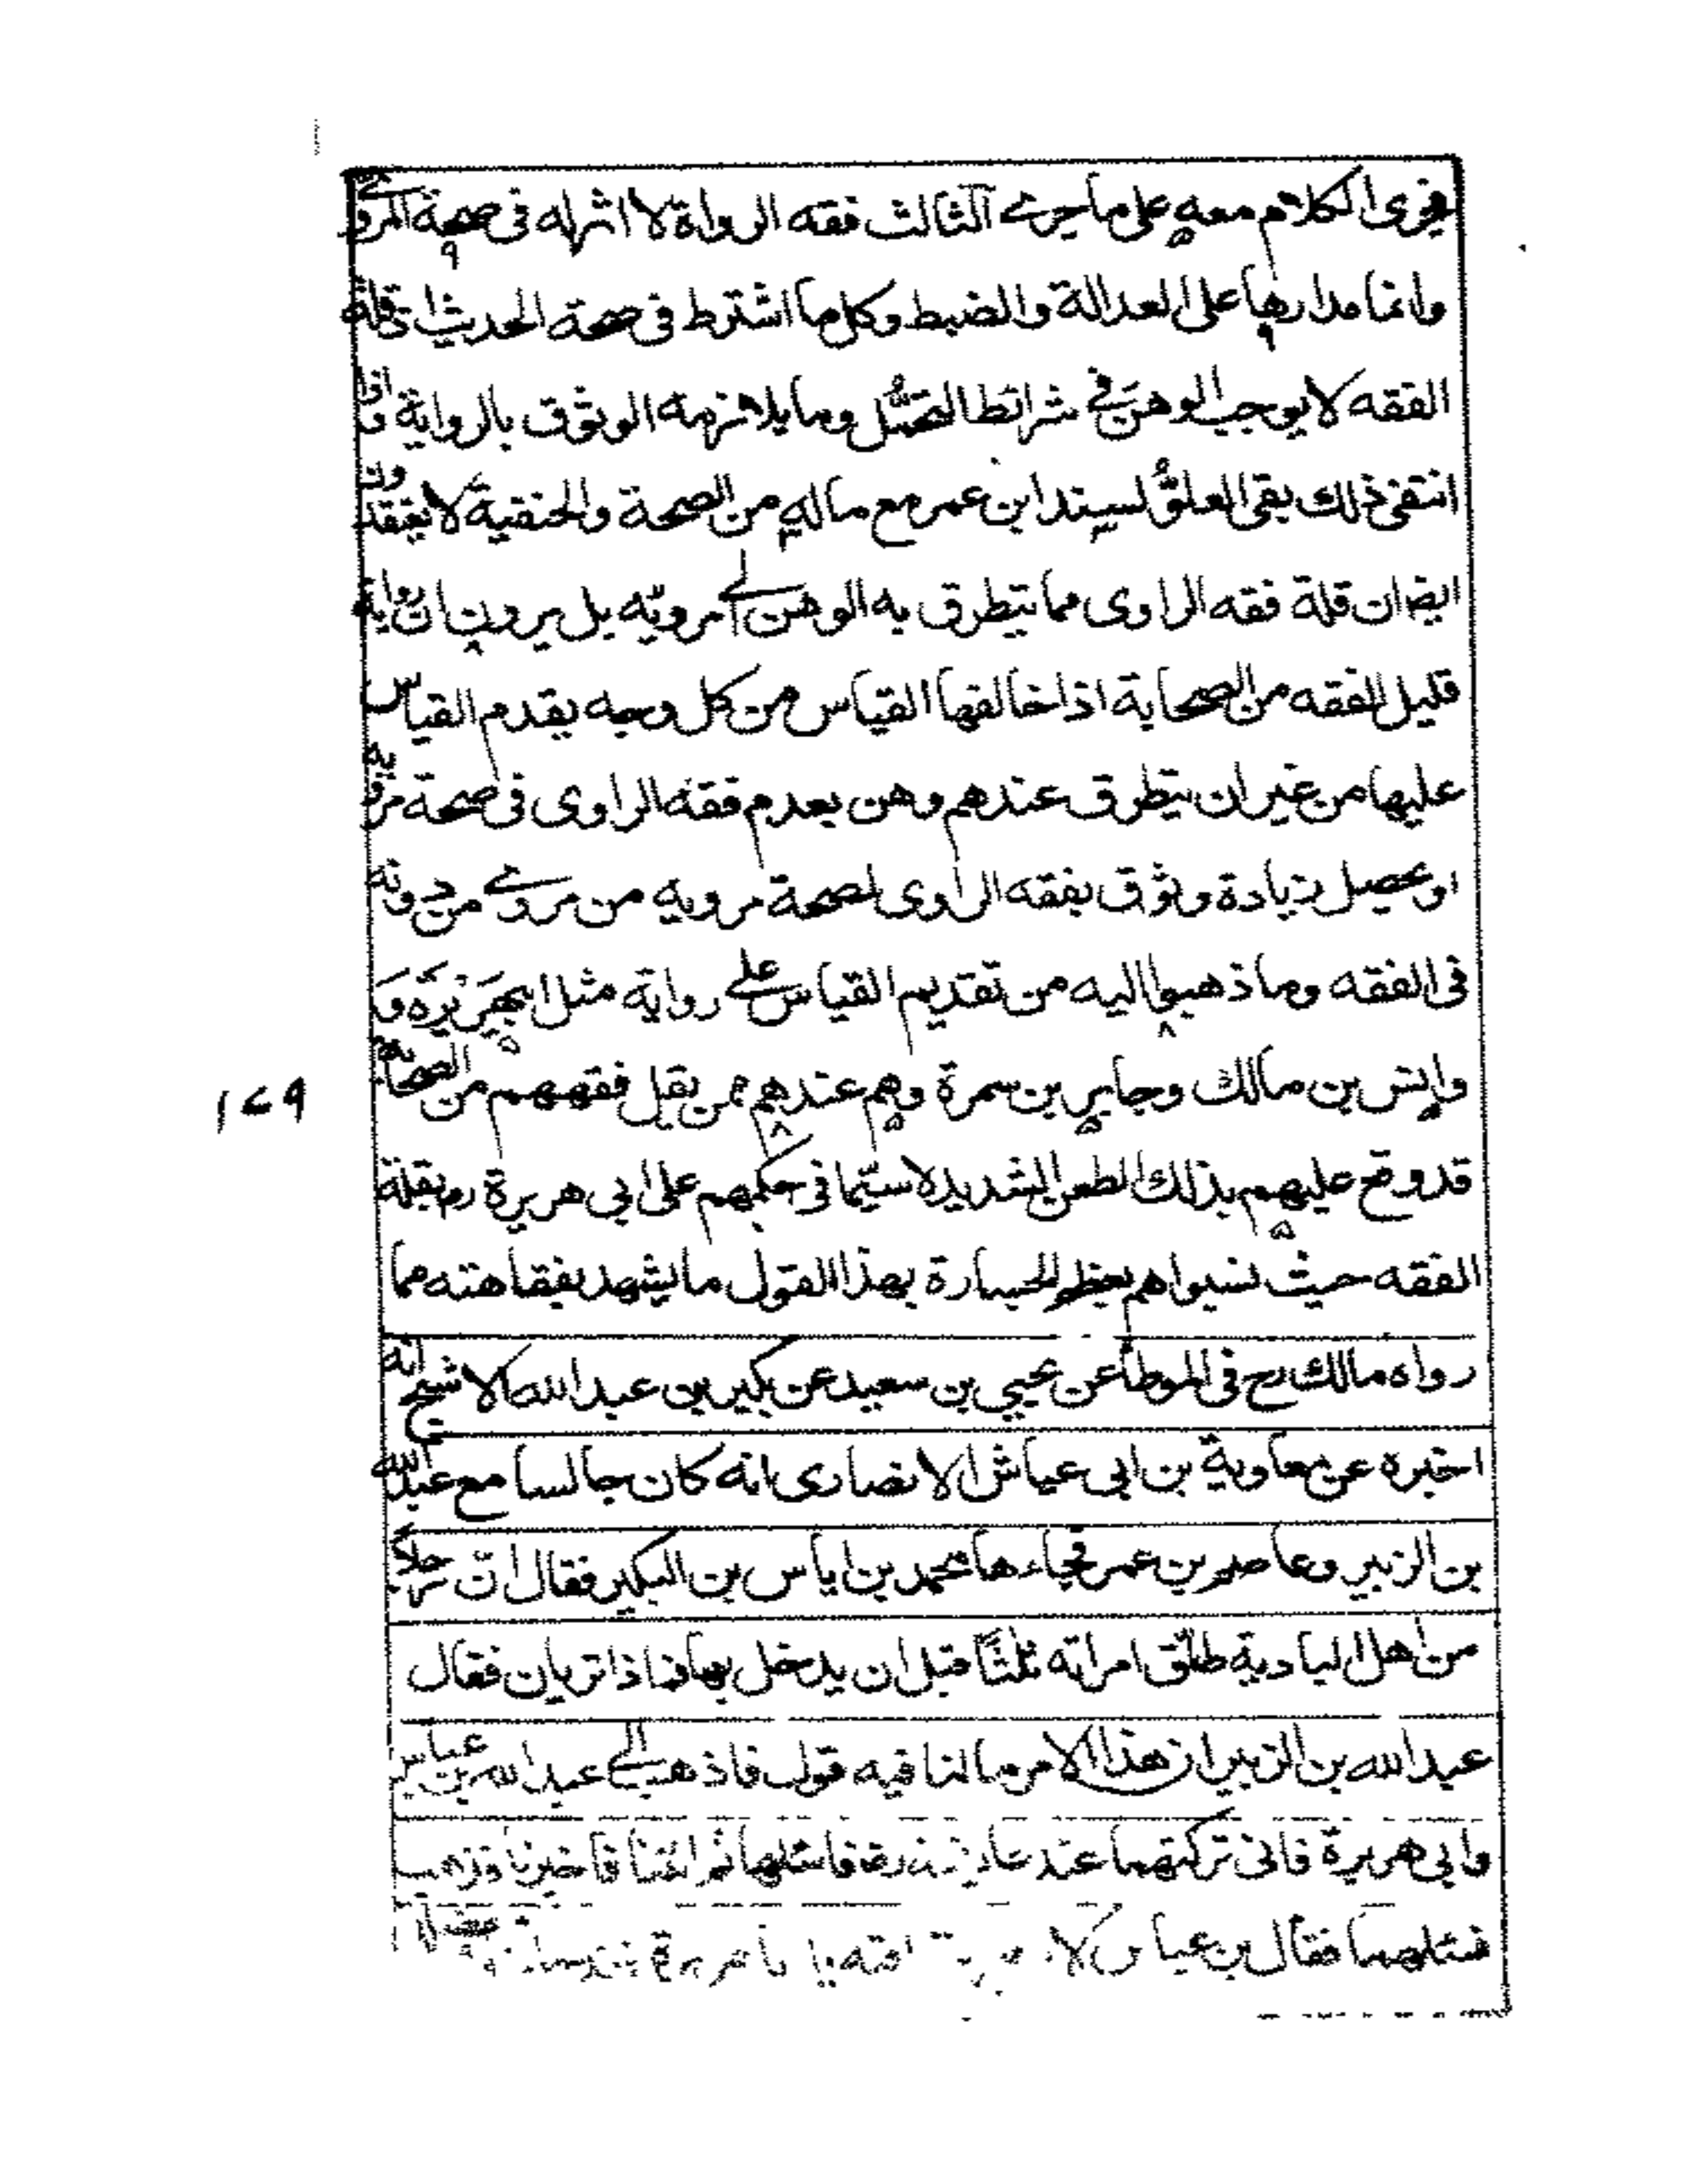 فجرى الكلام معه على ما جرى الثالث فقه الرواة لا اثر له فى صحة المروى
وانما مدارها على العدالة والضبط وكل ما اشترط فى صحة الحديث اذ قلة
الفقه لا يوجب الوهن فى شرائط التحمل وما يلازمه الوثوق بالرواية واذا
انتفى ذلك بقى العلو لسند ابن عمر مع ماله من الصحة والحنفية لا يعتقدون
ايضا ان قلة فقه الراوى مما يتطرق به الوهن الى مرويه بل يرون ان رواية
قليل الفقه من الصحابة اذا خالفها القياس من كل وجه يقدم القياس
عليها من غير ان يتطرق عندهم وهن بعدم فقه الراوى فى صحة مرويه
او يحصل زيادة وثوق بفقه الراوى لصحة مرويه من مروى من دونه
فى الفقه وما ذهبوا اليه من تقديم القياس على رواية مثل ابى هريرة و
وانس بن مالك وجابر بن سمرة وهم عندهم ممن يقل فقههم من الصحابة
قد وقع عليهم بذلك الطعن الشديد لا سيما فى حكمهم على ابى هريرة رض بقلة
الفقه حيث نسبواهم بعظم الجسارة بهذا القول ما يشهد بفقاهته مما
رواه مالك رح فى الموطأ عن يحيى بن سعيد عن بكير بن عبد الله الاشج انه
اخبره عن معاوية بن ابى عياش الانصارى انه كان جالسا مع عبد الله
بن الزبير وعاصم بن عمر فجاءهما محمد بن اياس بن البكير فقال ان رجلا
من اهل البادية طلق امراته ثلثا قبل ان يدخل بها فماذا تريان فقال
عبد الله بن الزبير ان هذا الامر ما لنا فيه قول فاذهب الى عبد الله بن عباس
وابى هريرة فانى تركتهما عند عايشة رض فاسئلهما ثم ائتنا فاخبرنا فذهب
فسئلهما فقال بن عباس لابى هريرة افته يا با هريرة فقد
۱۷۹